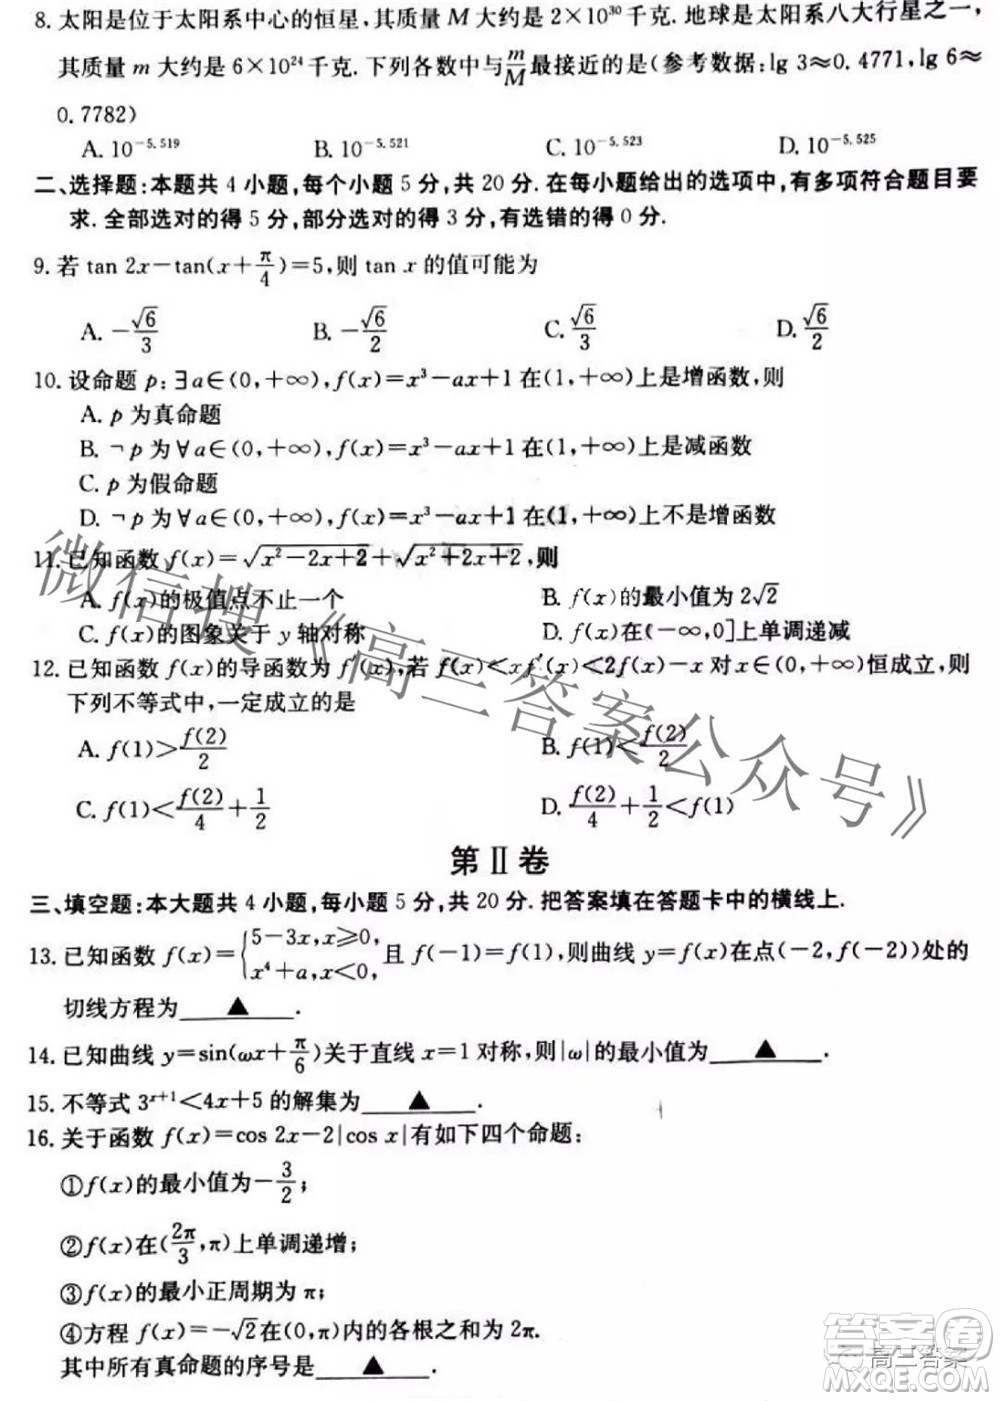 8. 太阳是位于太阳系中心的恒星,其质量 M 大约是 2×10³⁰ 千克. 地球是太阳系八大行星之一,
其质量 m 大约是 6×10²⁴ 千克. 下列各数中与 m/M 最接近的是(参考数据:lg 3≈0.4771, lg 6≈
0.7782)
A. 10^{-5.519} B. 10^{-5.521} C. 10^{-5.523} D. 10^{-5.525}
二、选择题:本题共 4 小题,每个小题 5 分,共 20 分. 在每小题给出的选项中,有多项符合题目要
求. 全部选对的得 5 分,部分选对的得 3 分,有选错的得 0 分.
9. 若 tan 2x−tan(x+π/4)=5,则 tan x 的值可能为
A. −√6/3 B. −√6/2 C. √6/3 D. √6/2
10. 设命题 p:∃a∈(0,+∞),f(x)=x³−ax+1 在(1,+∞)上是增函数,则
A. p 为真命题
B. ¬p 为∀a∈(0,+∞),f(x)=x³−ax+1 在(1,+∞)上是减函数
C. p 为假命题
D. ¬p 为∀a∈(0,+∞),f(x)=x³−ax+1 在(1,+∞)上不是增函数
11. 已知函数 f(x)=√(x²−2x+2)+√(x²+2x+2),则
A. f(x)的极值点不止一个 B. f(x)的最小值为 2√2
C. f(x)的图象关于 y 轴对称 D. f(x)在(−∞,0]上单调递减
12. 已知函数 f(x)的导函数为 f′(x),若 f(x)<xf′(x)<2f(x)−x 对 x∈(0,+∞)恒成立,则
下列不等式中,一定成立的是
A. f(1)>f(2)/2 B. f(1)<f(2)/2
C. f(1)<f(2)/4+1/2 D. f(2)/4+1/2<f(1)
第Ⅱ卷
三、填空题:本大题共 4 小题,每小题 5 分,共 20 分. 把答案填在答题卡中的横线上.
13. 已知函数 f(x)={5−3x,x≥0, x⁴+a,x<0, 且 f(−1)=f(1),则曲线 y=f(x)在点(−2,f(−2))处的
切线方程为 ▲ .
14. 已知曲线 y=sin(ωx+π/6)关于直线 x=1 对称,则|ω|的最小值为 ▲ .
15. 不等式 3^{x+1}<4x+5 的解集为 ▲ .
16. 关于函数 f(x)=cos 2x−2|cos x|有如下四个命题:
①f(x)的最小值为−3/2;
②f(x)在(2π/3,π)上单调递增;
③f(x)的最小正周期为 π;
④方程 f(x)=−√2在(0,π)内的各根之和为 2π.
其中所有真命题的序号是 ▲ .
微信搜《高三答案公众号》
答案圈
高三答案
MXQE.COM